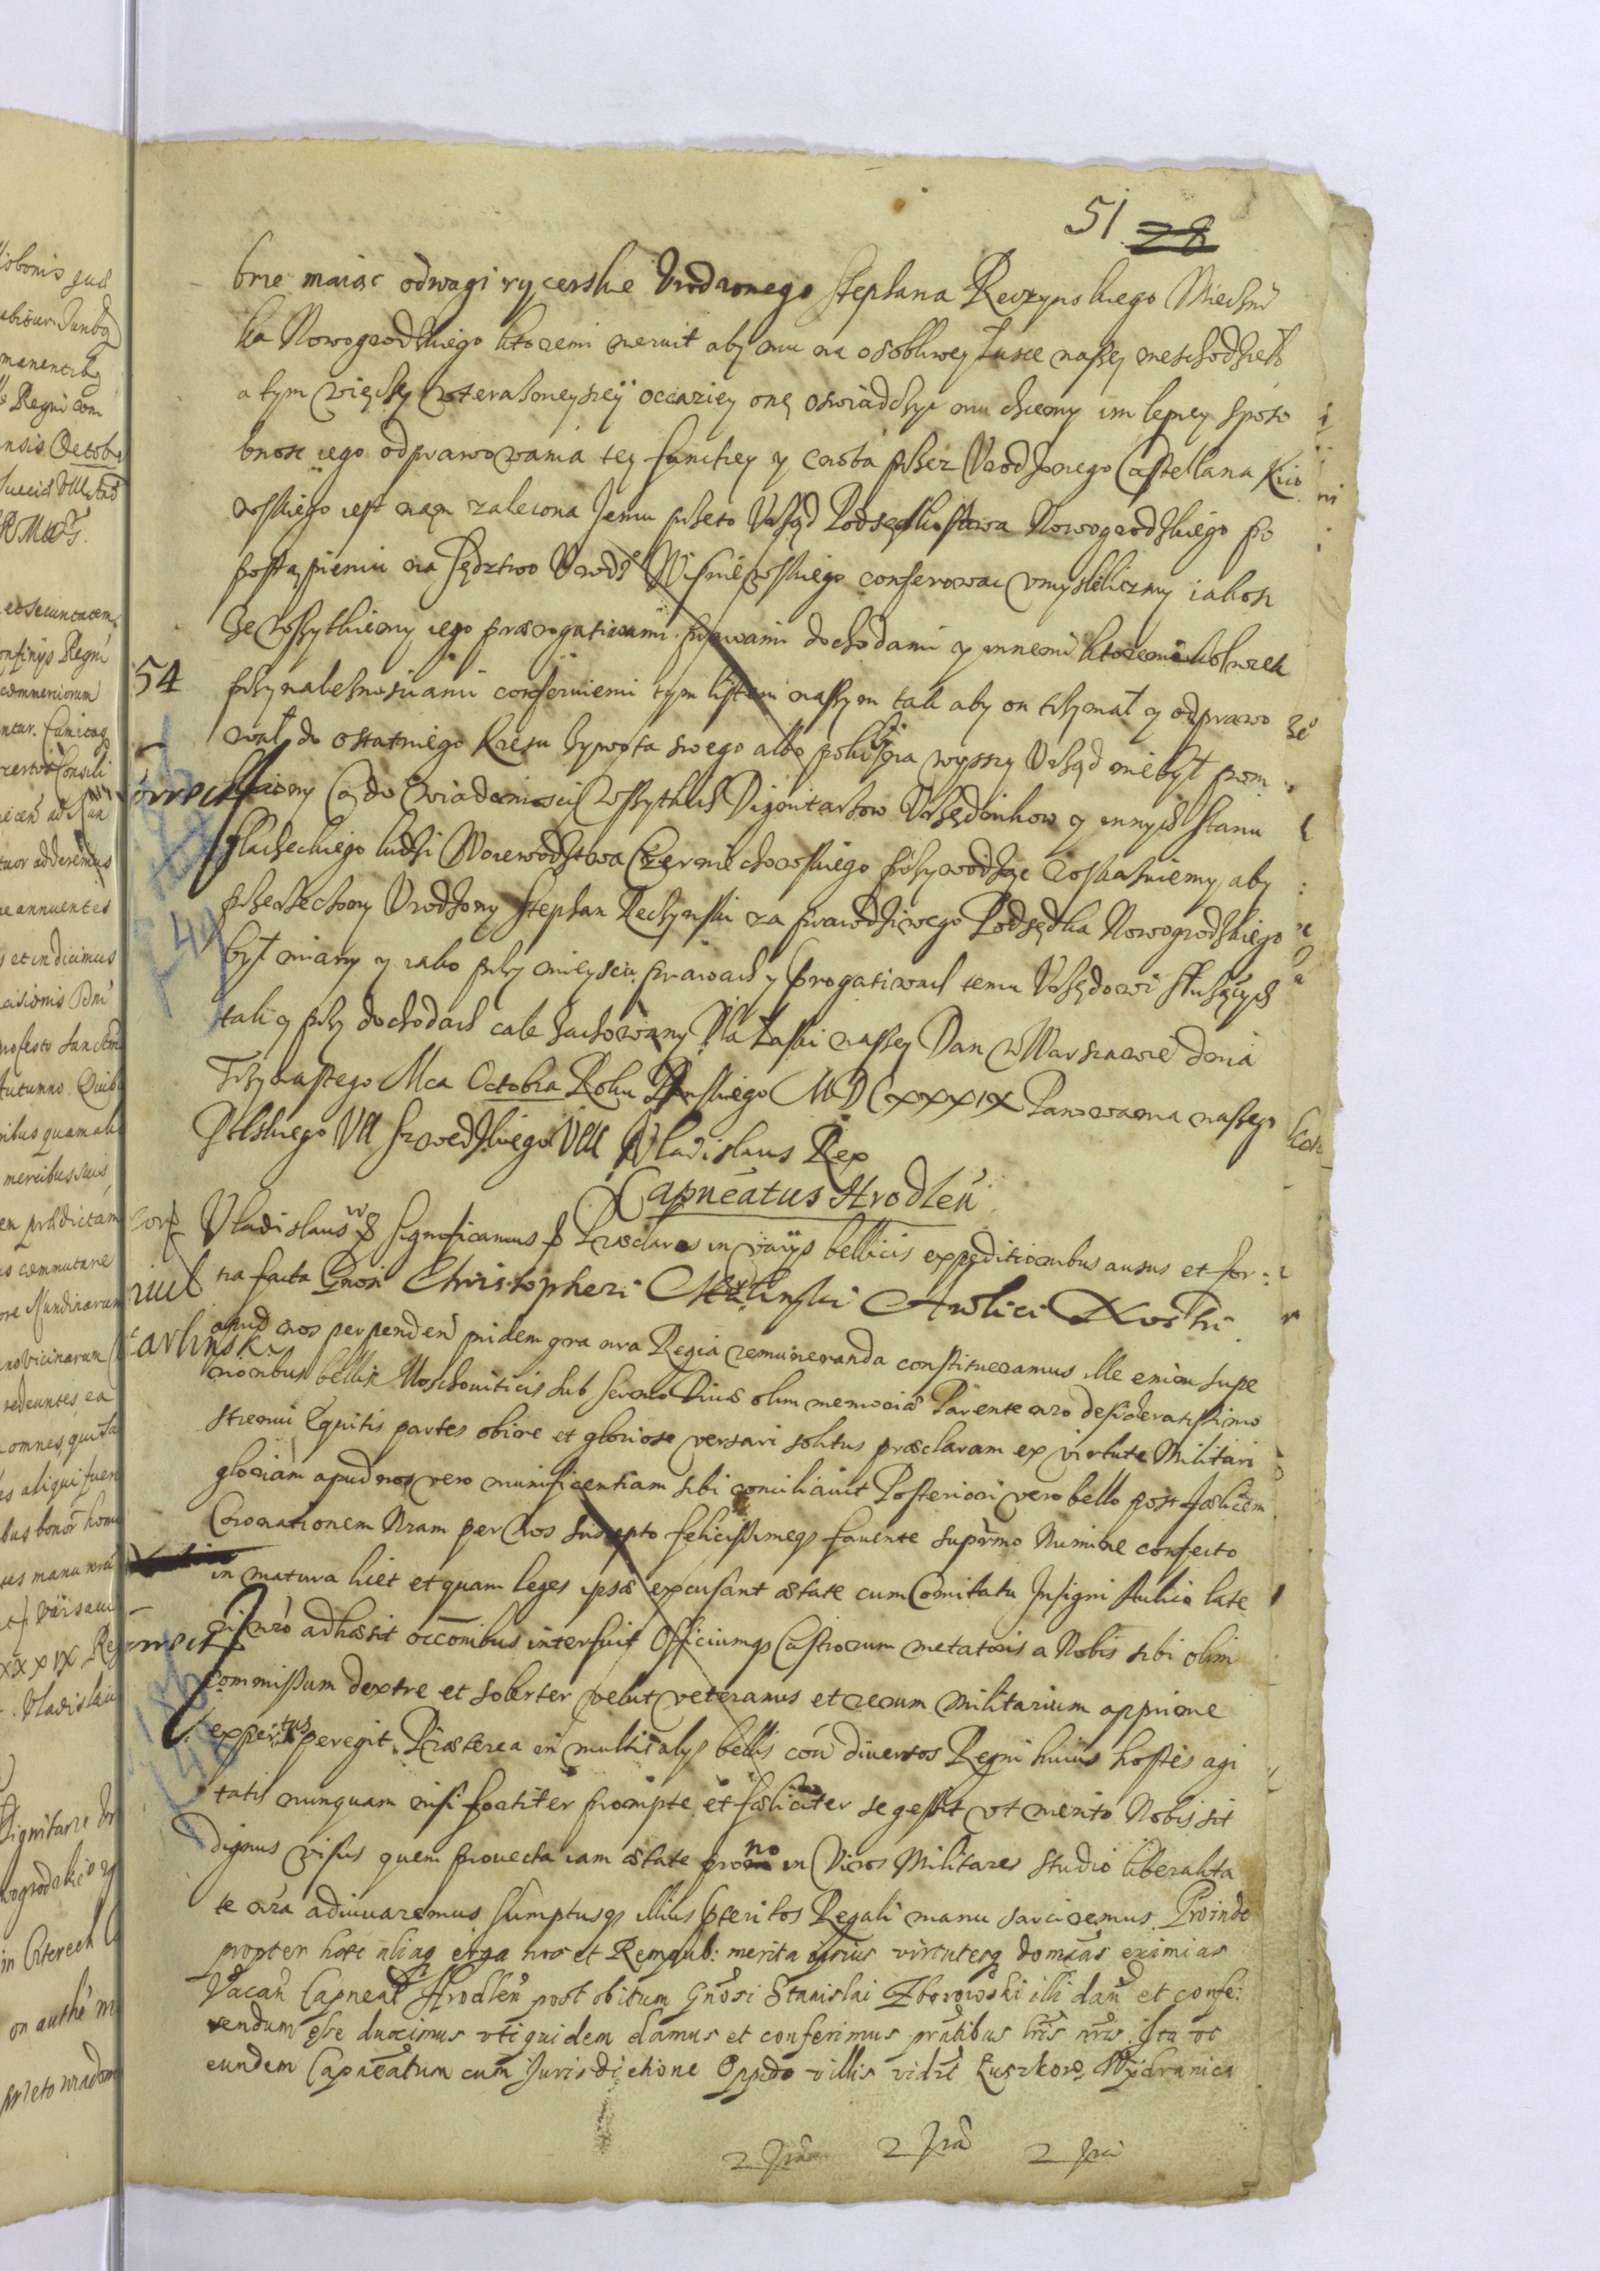 51 28
bne maiąc odwagi rycerskie Vrodzonego Stephana Reczynskiego Miecźni
ka Nowogrodzkiego ktoremi meruit aby mu na osobliwey Łasce naszey nieschodzieło
a tym więcksy w terasznieyszey occaziey onę oswiadczyc mu chcemy im lepiey sposo
bnosc iego odprawowania tey functiey y cnota przez Vrodzonego Castellana Kiio
wskiego iest nam zalecona Jemu przeto Vrząd Podsęskostwa Nowogrodzkiego po
postąpieniu na Sędztwo Vrodz Wisniewskiego conferowac vmysliliczmy iakosz
ze wszytkiemy iego prærogatiwami prawami dochodami y innemi ktoremikolwiek
54
przynaleznosciami conferuiemi tym listem naszym tak aby on trzymał y odprawo
wał do ostatniego kresu zywota swego albo poki na wyszsy Vrząd niebył pom
kniony Co do wiadomosci wszytkich Dignitarzow Vrzędnikow y innych stanu
szlacheckiego ludzi Woiewodztwa Czerniechowskiego przywodząc roskazuiemy aby
przerzeczony Vrodzony Stephan Reczynski za prawdziwego Podsędka Nowogrodzkiego
był miany y iako przy mieyscu prawach y progatiwach temu Vrzędowi słuzących
tak y przy dochodach cale zachowany Dla Łaski naszey Dan w Warszawie dnia
Trzynastego Mca Octobra Roku Panskiego MDCXXXIX Panowania naszego
Polskiego VII Szwedzkiego VIII Vladislaus Rex
Capneatus Hrodlen
Vladislaus Significamus Præclaros in varijs bellicis expeditionibus ausus et for:
tia facta Gnosi Christopheri Karlinski Aulici Nostri
Karlinsk
apud nos perpenden pridem gra nra Regia remuneranda constitueramus ille enim supe
rioribus bellis Moschouiticis sub sermo Diuæ olim memoriæ Parente nro desideratissimo
strenui Equitis partes obire et gloriose versari solitus præclaram ex virtute Militari
gloriam apud nos vero munificentiam sibi conciliauit Posteriori vero bello post fælicem
Coronationem Nram per Nos suscepto felicissimeq fauente supremo Numine confecto
in matura licet et quam leges ipsæ excusant ætate cum Comitatu Insigni stulio late
ri nro adhæsit occonibus interfuit Officiumq Castrorum metatoris a Nobis sibi olim
commissum dextre et solerter velut veteranus et rerum militarium apprime
expertus peregit Præterea in multis alys bellis con diuersos Regni huius hostes agi
tatis nunquam nisi fortiter prompte et fæliciter se gessit vt merito Nobis sit
dignus visus quem prouecta iam ætate prono in Viros Militares studio liberalita
te nra adiuuaremus sumptusq illius pteritos Regali manu sarciremus Proinde
propter hæc aliaq erga nos et Rempub: merita ipsius virtutesq domcas eximias
Vacan Capneat Hrodlen post obitum Gnosi Stanislai Zborowski illi dan et confe:
rendum esse duximus vti quidem damus et conferimus pntibus lris nris Ita vt
eundem Capneatum cum Jurisdictione Oppido villis vidzt Łuszkow Wydranica